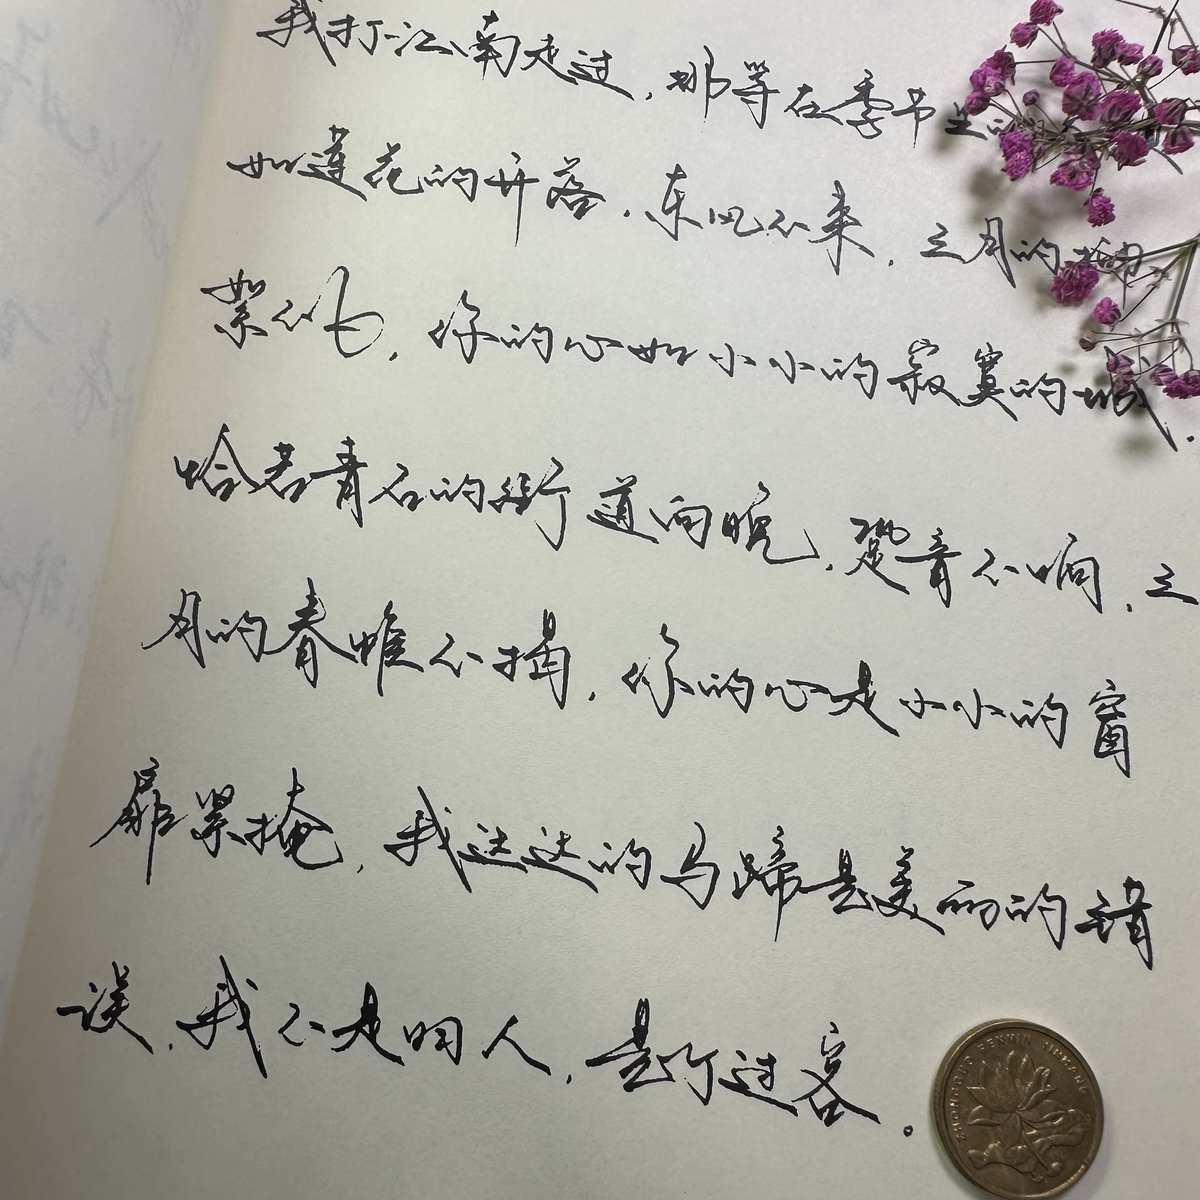 我打江南走过，那等在季节里的
如莲花的开落，东风不来，三月的柳
絮不飞，你的心如小小的寂寞的城，
恰若青石的街道向晚，跫音不响，三
月的春帷不揭，你的心是小小的窗
扉紧掩，我达达的马蹄是美丽的错
误，我不是归人，是个过客。
ZHONGGUO RENMIN YINHANG